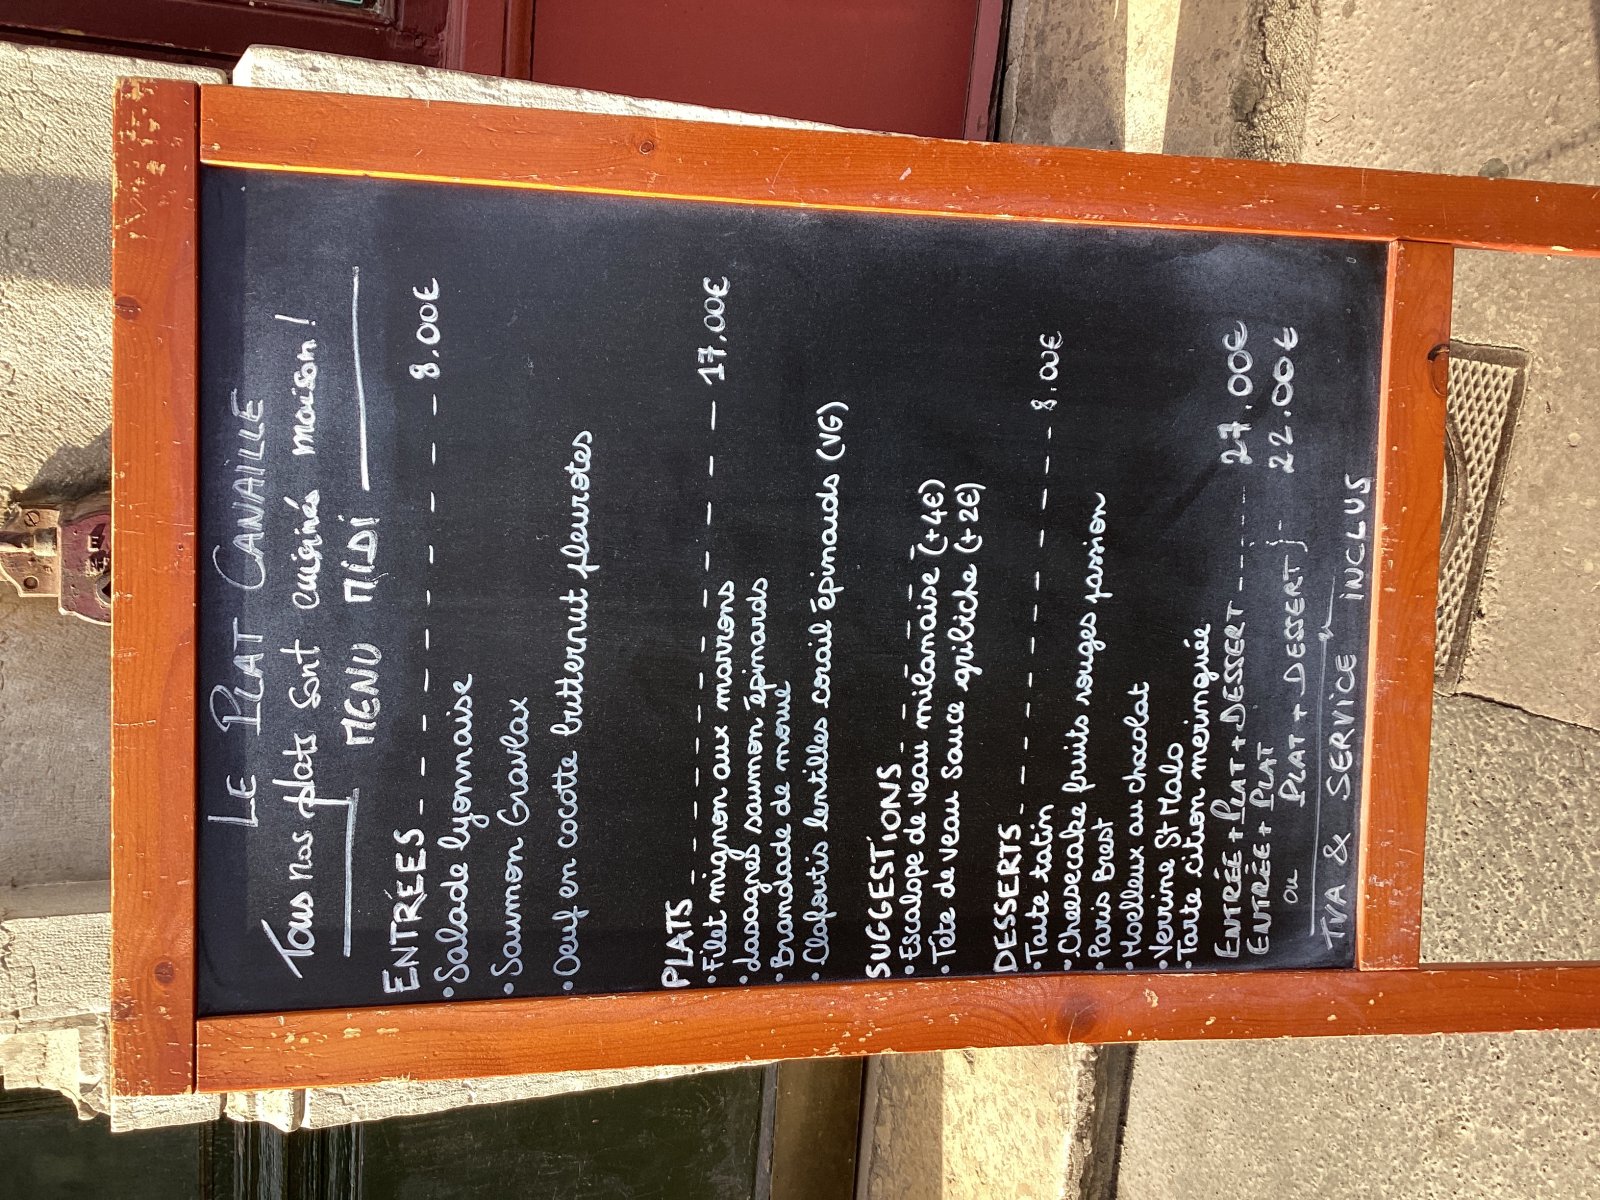 LE PLAT CANAILLE
Tous nos plats sont cuisinés maison !
MENU MIDI
ENTRÉES - - - - - - - - - - 8.00€
• Salade lyonnaise
• Saumon Gravlax
• Oeuf en cocotte butternut pleurotes
PLATS - - - - - - - - - - 17,00€
• Filet mignon aux marrons
• Lasagnes saumon épinards
• Brandade de morue
• Clafoutis lentilles corail épinards (VG)
SUGGESTIONS - - - - - -
• Escalope de veau milanaise (+4€)
• Tête de veau sauce gribiche (+2€)
DESSERTS - - - - - - - - - - 8.00€
• Tarte tatin
• Cheesecake fruits rouges passion
• Paris Brest
• Moelleux au chocolat
• Verrine St Malo
• Tarte citron meringuée
ENTRÉE + PLAT + DESSERT ------- 27.00€
ENTRÉE + PLAT
ou PLAT + DESSERT } --- 22.00€
TVA & SERVICE INCLUS